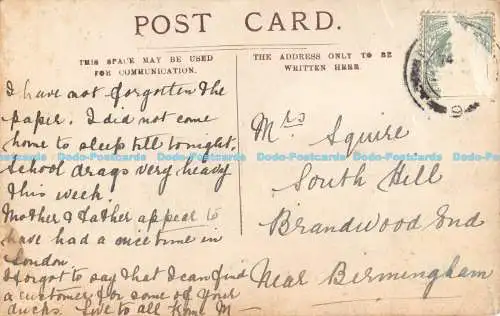 POST CARD.
THIS SPACE MAY BE USED
FOR COMMUNICATION.
THE ADDRESS ONLY TO BE
WRITTEN HERE.
I have not forgotten the
paper. I did not come
home to sleep till tonight.
School drags very heavy
this week.
Mother & Father appear to
have had a nice time in
London
I forgot to say that I can find
a customer for some of your
ducks. Love to all from M—
Mrs Squire
South Hill
Brandwood End
Near Birmingham
Delcampe-Postcards Delcampe-Postcards